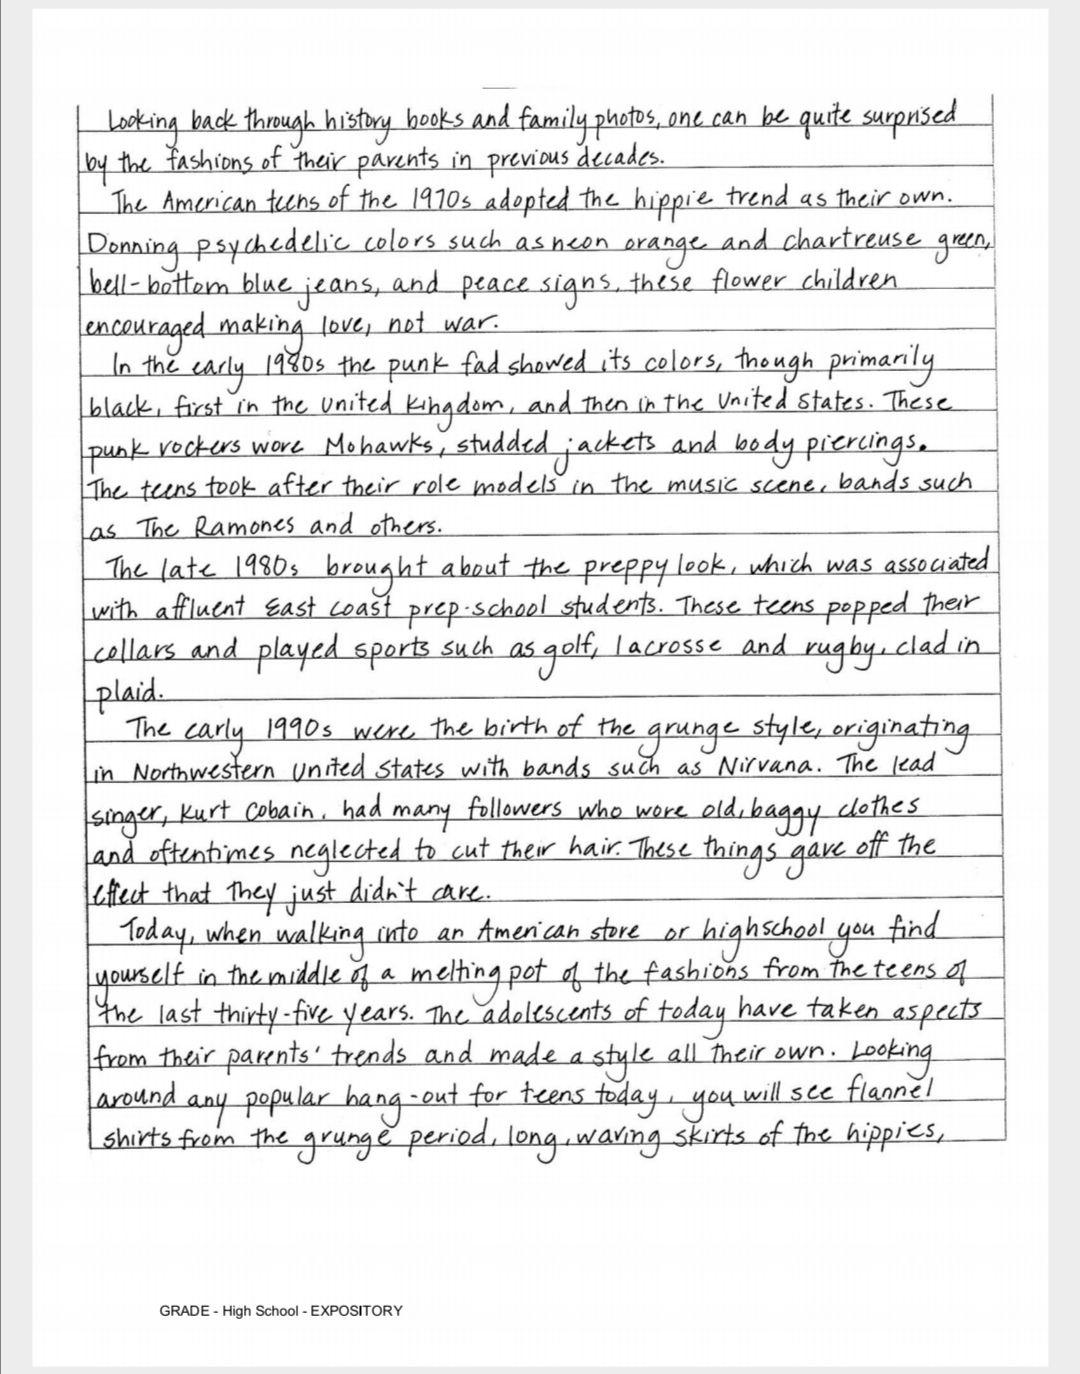 Looking back through history books and family photos, one can be quite surprised
by the fashions of their parents in previous decades.
The American teens of the 1970s adopted the hippie trend as their own.
Donning psychedelic colors such as neon orange and chartreuse green,
bell-bottom blue jeans, and peace signs, these flower children
encouraged making love, not war.
In the early 1980s the punk fad showed its colors, though primarily
black, first in the United Kingdom, and then in the United States. These
punk rockers wore Mohawks, studded jackets and body piercings.
The teens took after their role models in the music scene, bands such
as The Ramones and others.
The late 1980s brought about the preppy look, which was associated
with affluent East coast prep-school students. These teens popped their
collars and played sports such as golf, lacrosse and rugby, clad in
plaid.
The early 1990s were the birth of the grunge style, originating
in Northwestern United States with bands such as Nirvana. The lead
singer, Kurt Cobain, had many followers who wore old, baggy clothes
and oftentimes neglected to cut their hair. These things gave off the
effect that they just didn't care.
Today, when walking into an American store or highschool you find
yourself in the middle of a melting pot of the fashions from the teens of
the last thirty-five years. The adolescents of today have taken aspects
from their parents' trends and made a style all their own. Looking
around any popular hang-out for teens today, you will see flannel
shirts from the grunge period, long, waving skirts of the hippies,
GRADE - High School - EXPOSITORY